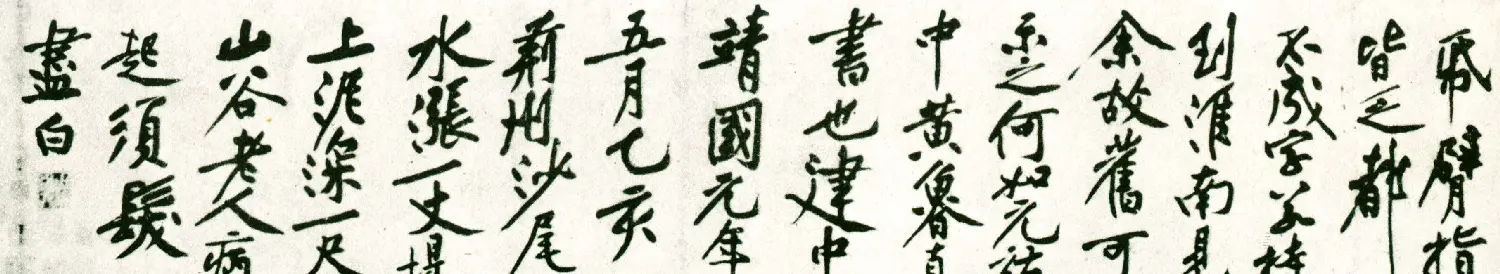 帋臂指
皆乏都
不成字若持
到淮南見
余故舊可
示之何如元祐
中黃魯直
書也建中
靖國元年
五月乙亥
荊州沙尾
水漲一丈堤
上泥深一尺
山谷老人病
起須髮
盡白